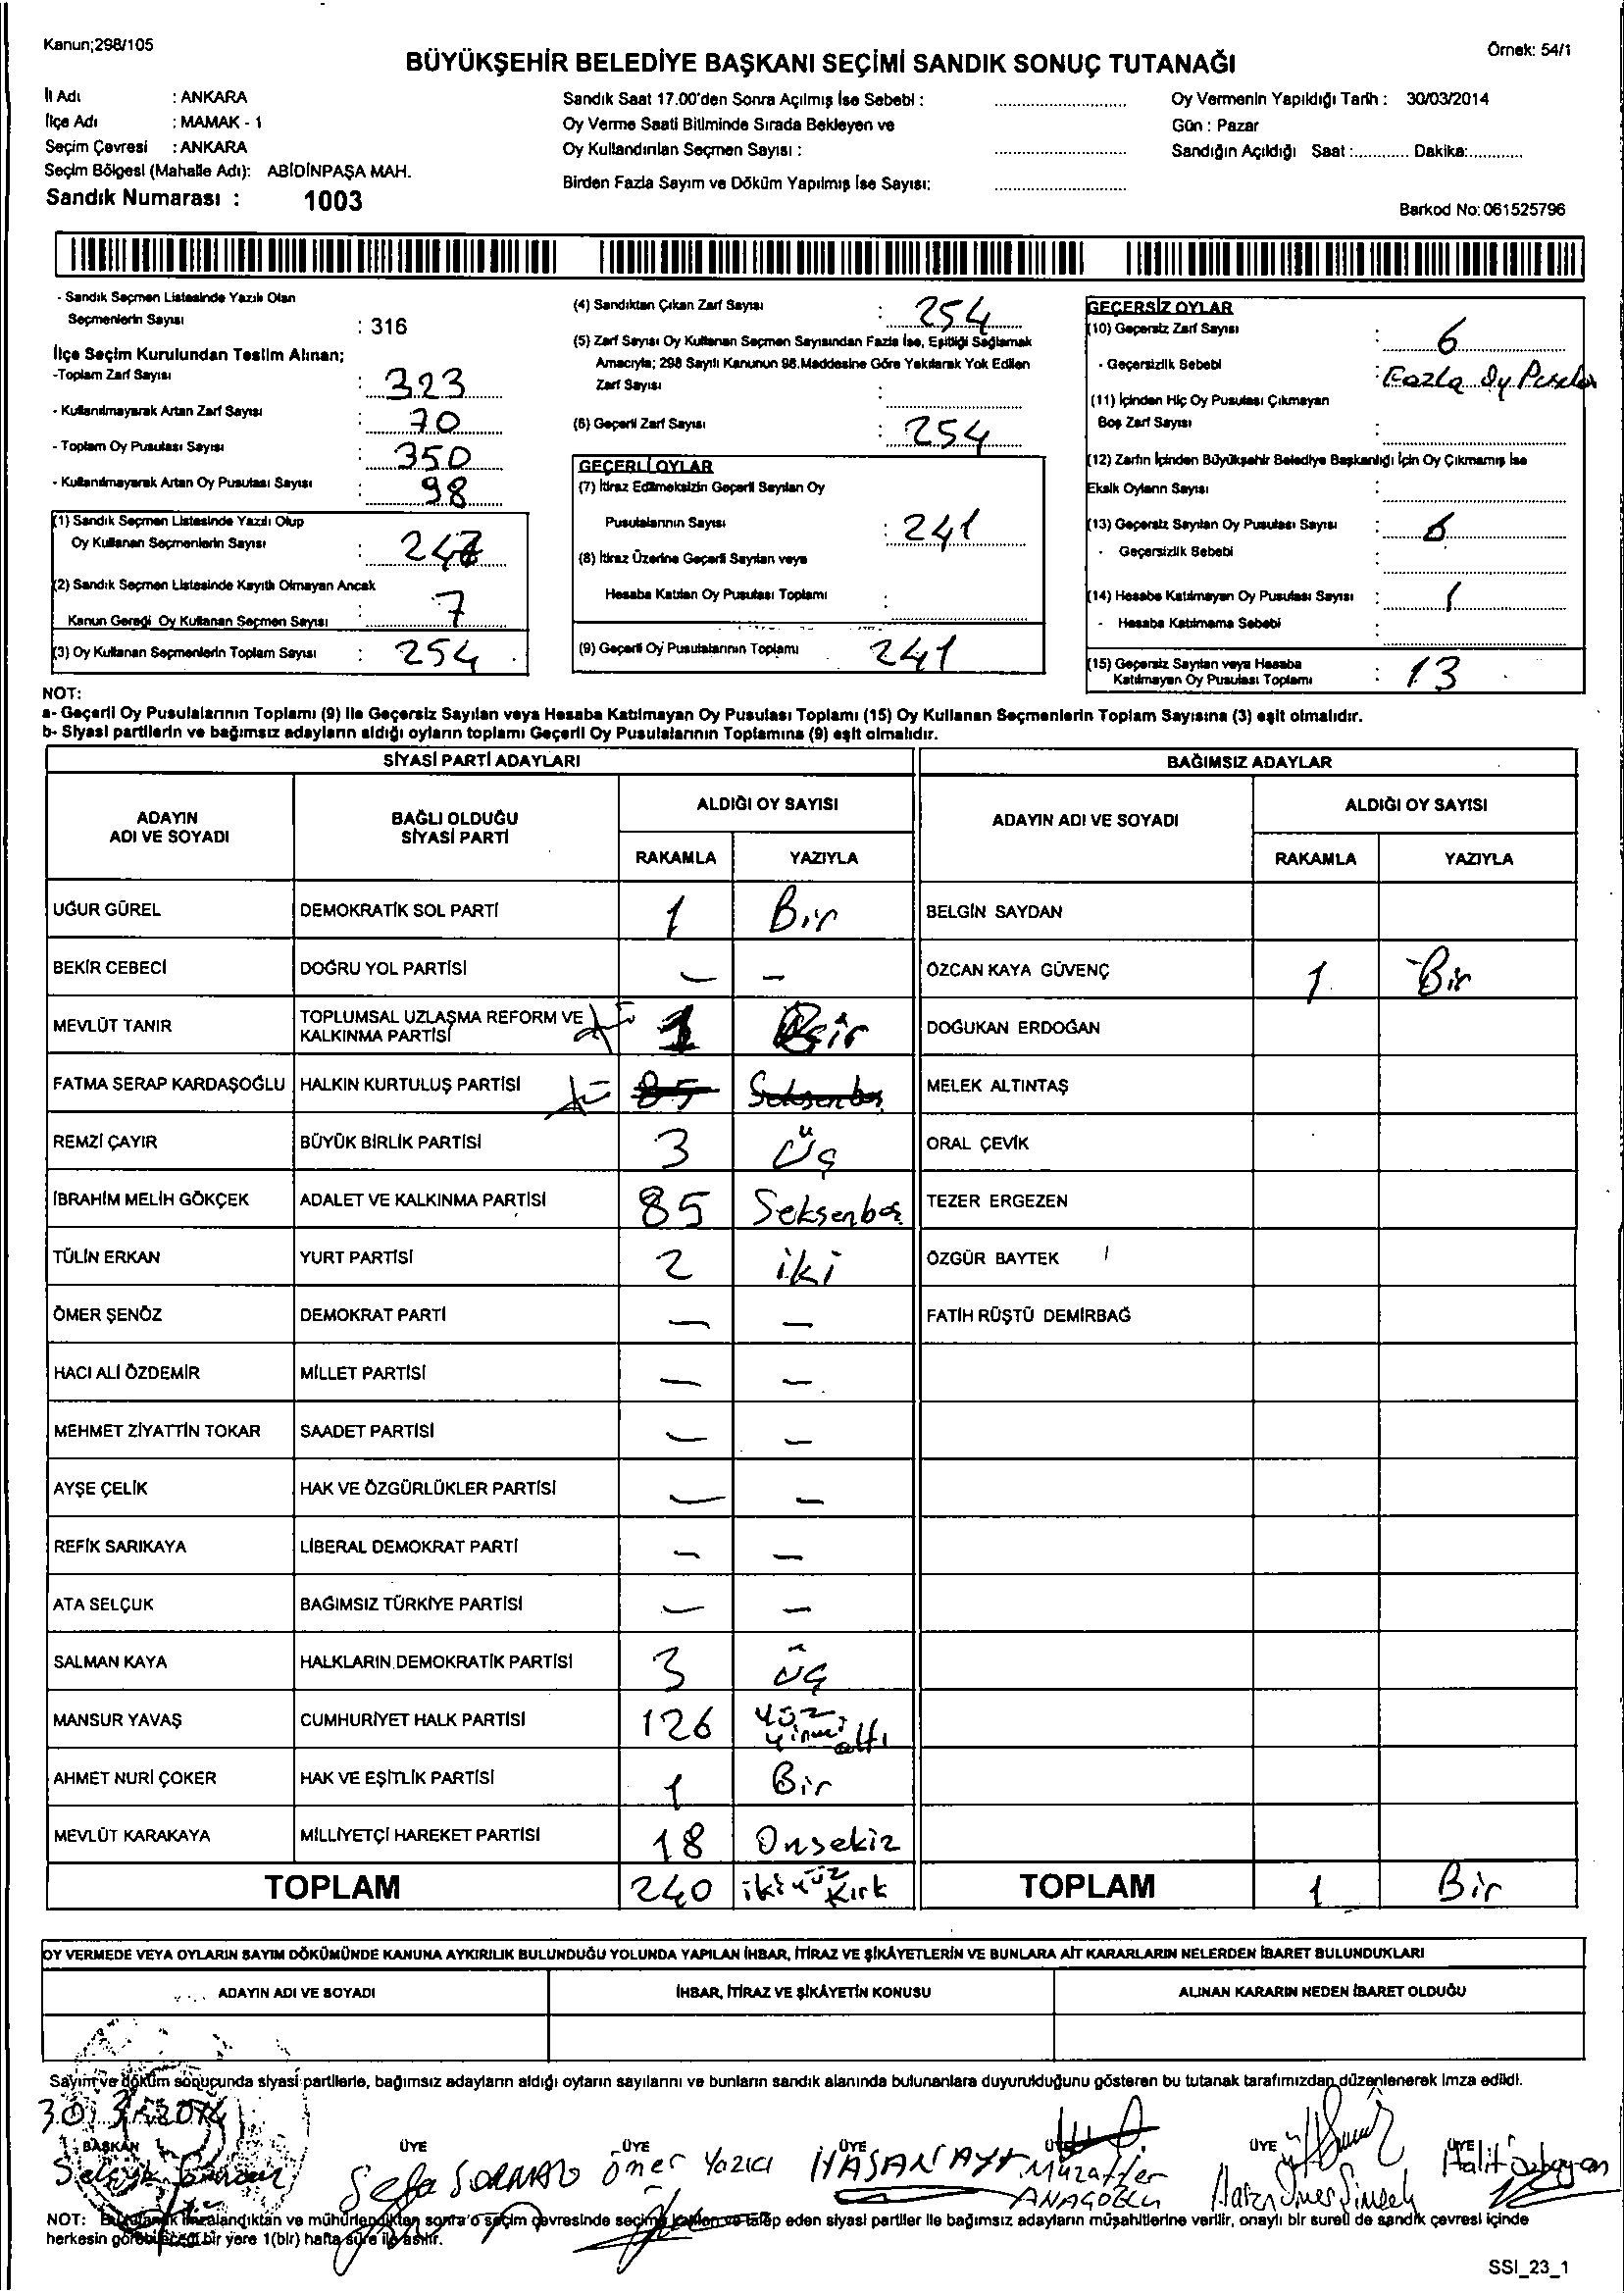 Kanun;298/105
Örnek: 54/1
BÜYÜKŞEHİR BELEDİYE BAŞKANI SEÇİMİ SANDIK SONUÇ TUTANAĞI
İl Adı : ANKARA
İlçe Adı : MAMAK - 1
Seçim Çevresi : ANKARA
Seçim Bölgesi (Mahalle Adı): ABİDİNPAŞA MAH.
Sandık Numarası : 1003
Sandık Saat 17.00'den Sonra Açılmış İse Sebebi :
Oy Verme Saati Bitiminde Sırada Bekleyen ve
Oy Kullandırılan Seçmen Sayısı :
Birden Fazla Sayım ve Döküm Yapılmış İse Sayısı:
Oy Vermenin Yapıldığı Tarih : 30/03/2014
Gün : Pazar
Sandığın Açıldığı Saat :............ Dakika:............
Barkod No: 061525796
- Sandık Seçmen Listesinde Yazılı Olan
Seçmenlerin Sayısı : 316
İlçe Seçim Kurulundan Teslim Alınan;
-Toplam Zarf Sayısı : 323
- Kullanılmayarak Artan Zarf Sayısı : 70
- Toplam Oy Pusulası Sayısı : 350
- Kullanılmayarak Artan Oy Pusulası Sayısı : 98
(1) Sandık Seçmen Listesinde Yazılı Olup
Oy Kullanan Seçmenlerin Sayısı : 247
(2) Sandık Seçmen Listesinde Kayıtlı Olmayan Ancak
Kanun Gereği Oy Kullanan Seçmen Sayısı : 7
(3) Oy Kullanan Seçmenlerin Toplam Sayısı : 254
(4) Sandıktan Çıkan Zarf Sayısı : 254
(5) Zarf Sayısı Oy Kullanan Seçmen Sayısından Fazla İse, Eşitliği Sağlamak
Amacıyla; 298 Sayılı Kanunun 98.Maddesine Göre Yakılarak Yok Edilen
Zarf Sayısı :
(6) Geçerli Zarf Sayısı : 254
GEÇERLİ OYLAR
(7) İtiraz Edilmeksizin Geçerli Sayılan Oy
Pusulalarının Sayısı : 241
(8) İtiraz Üzerine Geçerli Sayılan veya
Hesaba Katılan Oy Pusulası Toplamı :
(9) Geçerli Oy Pusulalarının Toplamı 241
GEÇERSİZ OYLAR
(10) Geçersiz Zarf Sayısı : 6
- Geçersizlik Sebebi : Fazla Oy
(11) İçinden Hiç Oy Pusulası Çıkmayan
Boş Zarf Sayısı :
(12) Zarfın İçinden Büyükşehir Belediye Başkanlığı İçin Oy Çıkmamış İse
Eksik Oyların Sayısı :
(13) Geçersiz Sayılan Oy Pusulası Sayısı : 6
- Geçersizlik Sebebi :
(14) Hesaba Katılmayan Oy Pusulası Sayısı : 1
- Hesaba Katılmama Sebebi :
(15) Geçersiz Sayılan veya Hesaba
Katılmayan Oy Pusulası Toplamı : 13
NOT:
a- Geçerli Oy Pusulalarının Toplamı (9) ile Geçersiz Sayılan veya Hesaba Katılmayan Oy Pusulası Toplamı (15) Oy Kullanan Seçmenlerin Toplam Sayısına (3) eşit olmalıdır.
b- Siyasi partilerin ve bağımsız adayların aldığı oyların toplamı Geçerli Oy Pusulalarının Toplamına (9) eşit olmalıdır.
SİYASİ PARTİ ADAYLARI
BAĞIMSIZ ADAYLAR
ADAYIN
ADI VE SOYADI
BAĞLI OLDUĞU
SİYASİ PARTİ
ALDIĞI OY SAYISI
RAKAMLA YAZIYLA
ADAYIN ADI VE SOYADI
ALDIĞI OY SAYISI
RAKAMLA YAZIYLA
UĞUR GÜREL DEMOKRATİK SOL PARTİ 1 Bir
BELGİN SAYDAN
BEKİR CEBECİ DOĞRU YOL PARTİSİ — —
ÖZCAN KAYA GÜVENÇ 1 Bir
MEVLÜT TANIR TOPLUMSAL UZLAŞMA REFORM VE KALKINMA PARTİSİ 1 Bir
DOĞUKAN ERDOĞAN
FATMA SERAP KARDAŞOĞLU HALKIN KURTULUŞ PARTİSİ 85 Seksenbeş
MELEK ALTINTAŞ
REMZİ ÇAYIR BÜYÜK BİRLİK PARTİSİ 3 Üç
ORAL ÇEVİK
İBRAHİM MELİH GÖKÇEK ADALET VE KALKINMA PARTİSİ 85 Seksenbeş
TEZER ERGEZEN
TÜLİN ERKAN YURT PARTİSİ 2 iki
ÖZGÜR BAYTEK
ÖMER ŞENÖZ DEMOKRAT PARTİ — —
FATİH RÜŞTÜ DEMİRBAĞ
HACI ALİ ÖZDEMİR MİLLET PARTİSİ — —
MEHMET ZİYATTİN TOKAR SAADET PARTİSİ — —
AYŞE ÇELİK HAK VE ÖZGÜRLÜKLER PARTİSİ — —
REFİK SARIKAYA LİBERAL DEMOKRAT PARTİ — —
ATA SELÇUK BAĞIMSIZ TÜRKİYE PARTİSİ — —
SALMAN KAYA HALKLARIN DEMOKRATİK PARTİSİ 3 üç
MANSUR YAVAŞ CUMHURİYET HALK PARTİSİ 126 yüz yirmi altı
AHMET NURİ ÇOKER HAK VE EŞİTLİK PARTİSİ 1 Bir
MEVLÜT KARAKAYA MİLLİYETÇİ HAREKET PARTİSİ 18 Onsekiz
TOPLAM 240 ikiyüz Kırk
TOPLAM 1 Bir
OY VERMEDE VEYA OYLARIN SAYIM DÖKÜMÜNDE KANUNA AYKIRILIK BULUNDUĞU YOLUNDA YAPILAN İHBAR, İTİRAZ VE ŞİKÂYETLERİN VE BUNLARA AİT KARARLARIN NELERDEN İBARET BULUNDUKLARI
ADAYIN ADI VE SOYADI İHBAR, İTİRAZ VE ŞİKÂYETİN KONUSU ALINAN KARARIN NEDEN İBARET OLDUĞU
Sayım ve döküm sonucunda siyasi partilerle, bağımsız adayların aldığı oyların sayılarını ve bunların sandık alanında bulunanlara duyurulduğunu gösteren bu tutanak tarafımızdan düzenlenerek imza edildi.
BAŞKAN ÜYE ÜYE ÜYE ÜYE ÜYE ÜYE
Sefa Ömer Yazıcı HASAN Muzaffer
NOT: Bu tutanak imzalandıktan ve mühürlendikten sonra o seçim çevresinde seçime katılan ve talep eden siyasi partiler ile bağımsız adayların müşahitlerine verilir, onaylı bir sureti de sandık çevresi içinde
herkesin görebileceği bir yere 1(bir) hafta süre ile asılır.
SSI_23_1